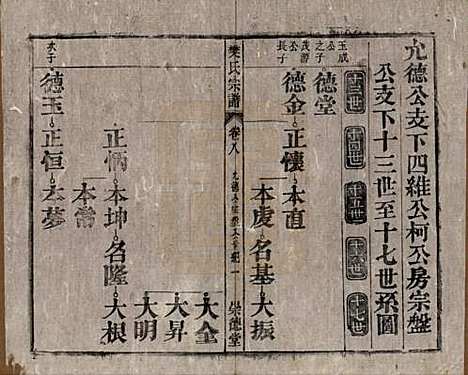 允德公支下四維公柯公房宗盤
公支下十三世至十七世系圖
十三世 十四世 十五世 十六世 十七世
玉成
公
之子
茂
長子
德堂
德金 正懷 本直
本虔 名基 大振
樊氏宗譜 卷八 一 崇德堂
大全
大昇
大明
正 本坤 名隆 大根
本常
次子
德玉 正恒 本夢